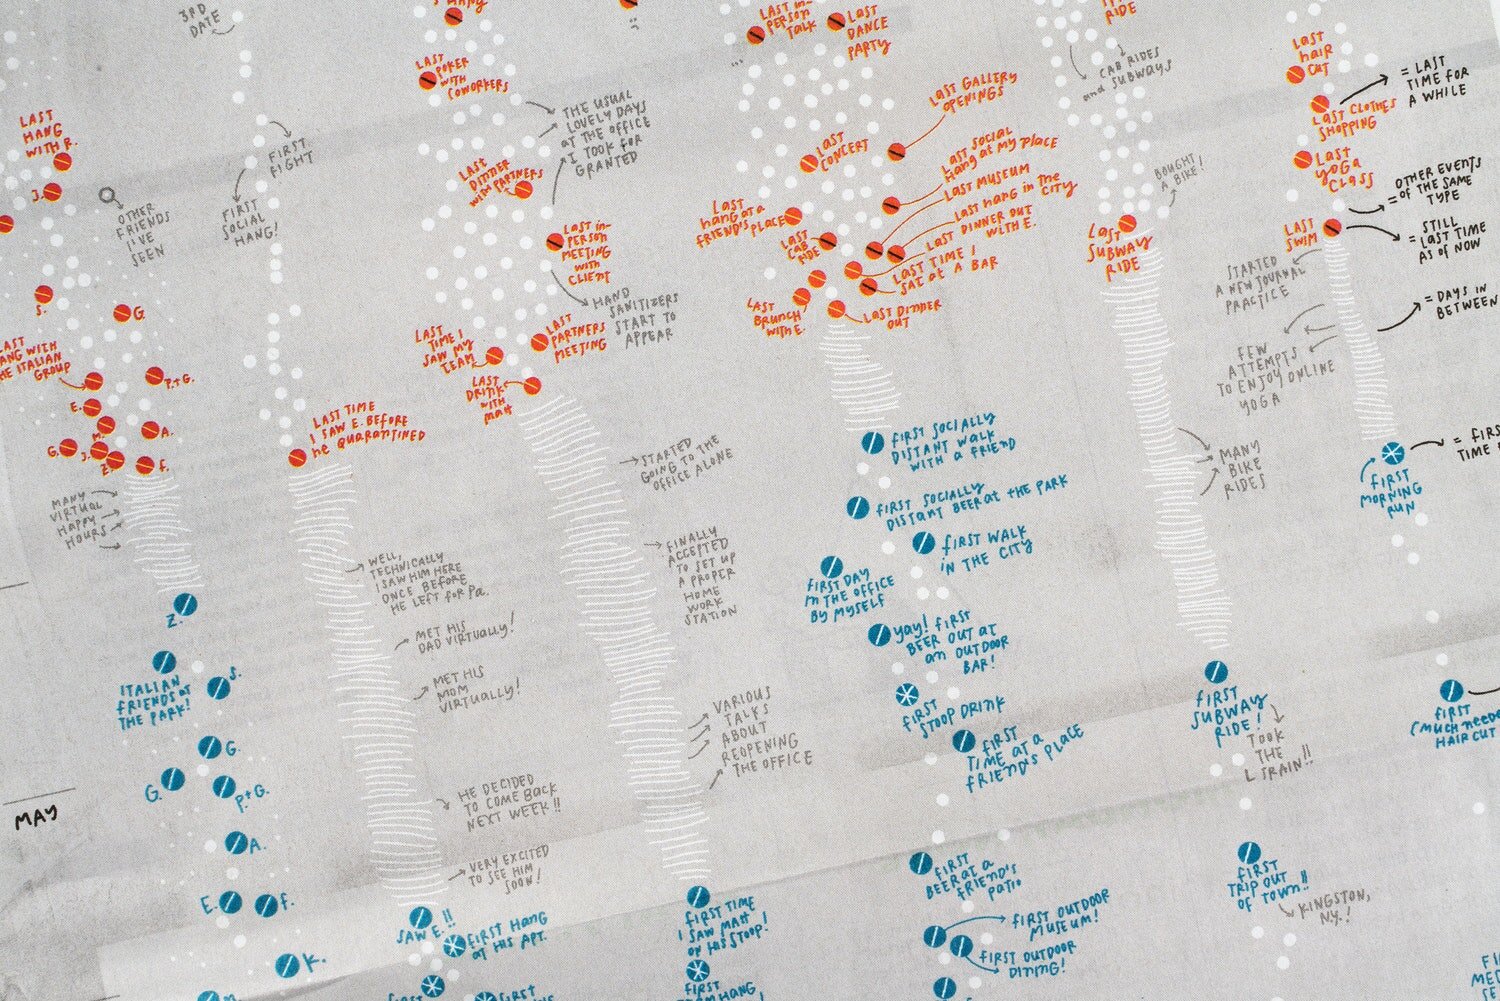 3RD
DATE
LAST
HANG
WITH R.
J.
OTHER
FRIENDS
I'VE
SEEN
S.
G.
LAST
HANG WITH
THE ITALIAN
GROUP
P.+G.
E.
M.
A.
G.
J.
Z.
F.
MANY
VIRTUAL
HAPPY
HOURS
Z.
ITALIAN
FRIENDS AT
THE PARK!
S.
G.
G.
P.+G.
A.
E.
F.
K.
MAY
FIRST
FIGHT
FIRST
SOCIAL
HANG!
LAST TIME
I SAW E. BEFORE
HE QUARANTINED
WELL,
TECHNICALLY
I SAW HIM HERE
ONCE BEFORE
HE LEFT FOR Pa.
MET HIS
DAD VIRTUALLY!
MET HIS
MOM
VIRTUALLY!
HE DECIDED
TO COME BACK
NEXT WEEK!!
VERY EXCITED
TO SEE HIM
SOON!
SAW E.!!
FIRST HANG
AT HIS APT.
FIRST
FIRST
LAST
POKER
WITH
COWORKERS
THE USUAL
LOVELY DAYS
AT THE OFFICE
I TOOK FOR
GRANTED
LAST
DINNER
WITH PARTNERS
LAST IN-
PERSON
MEETING
WITH
CLIENT
HAND
SANITIZERS
START TO
APPEAR
LAST
TIME I
SAW MY
TEAM
LAST
PARTNERS
MEETING
LAST
DRINK
WITH
MATT
STARTED
GOING TO THE
OFFICE ALONE
FINALLY
ACCEPTED
TO SET UP
A PROPER
HOME
WORK
STATION
VARIOUS
TALKS
ABOUT
REOPENING
THE OFFICE
FIRST TIME
I SAW MATT
ON HIS STOOP!
FIRST
TEAM HANG
LAST IN-
PERSON
TALK
LAST
DANCE
PARTY
LAST GALLERY
OPENINGS
LAST
CONCERT
LAST SOCIAL
HANG AT MY PLACE
LAST MUSEUM
LAST HANG IN THE
CITY
LAST DINNER OUT
WITH E.
LAST TIME I
SAT AT A BAR
LAST
HANG AT A
FRIEND'S PLACE
LAST
CAB
RIDE
LAST
BRUNCH
WITH E.
LAST DINNER
OUT
FIRST SOCIALLY
DISTANT WALK
WITH A FRIEND
FIRST SOCIALLY
DISTANT BEER AT THE PARK
FIRST WALK
IN THE CITY
FIRST DAY
IN THE OFFICE
BY MYSELF
YAY! FIRST
BEER OUT AT
AN OUTDOOR
BAR!
FIRST
STOOP DRINK
FIRST
TIME AT A
FRIEND'S PLACE
FIRST
BEER AT A
FRIEND'S
PATIO
FIRST OUTDOOR
MUSEUM!
FIRST OUTDOOR
DINING!
RIDE
CAB RIDES
and SUBWAYS
BOUGHT
A BIKE!
LAST
SUBWAY
RIDE
MANY
BIKE
RIDES
FIRST
SUBWAY
RIDE!
TOOK
THE
L TRAIN!!
FIRST
TRIP OUT
OF TOWN!!
KINGSTON,
NY.!
LAST
HAIR
CUT
= LAST
TIME FOR
A WHILE
LAST CLOTHES
SHOPPING
LAST
YOGA
CLASS
= OTHER EVENTS
OF THE SAME
TYPE
LAST
SWIM
= STILL
LAST TIME
AS OF NOW
STARTED
A NEW JOURNAL
PRACTICE
= DAYS IN
BETWEEN
FEW
ATTEMPTS
TO ENJOY ONLINE
YOGA
= FIRST
TIME
FIRST
MORNING
RUN
FIRST
(MUCH NEEDED
HAIRCUT